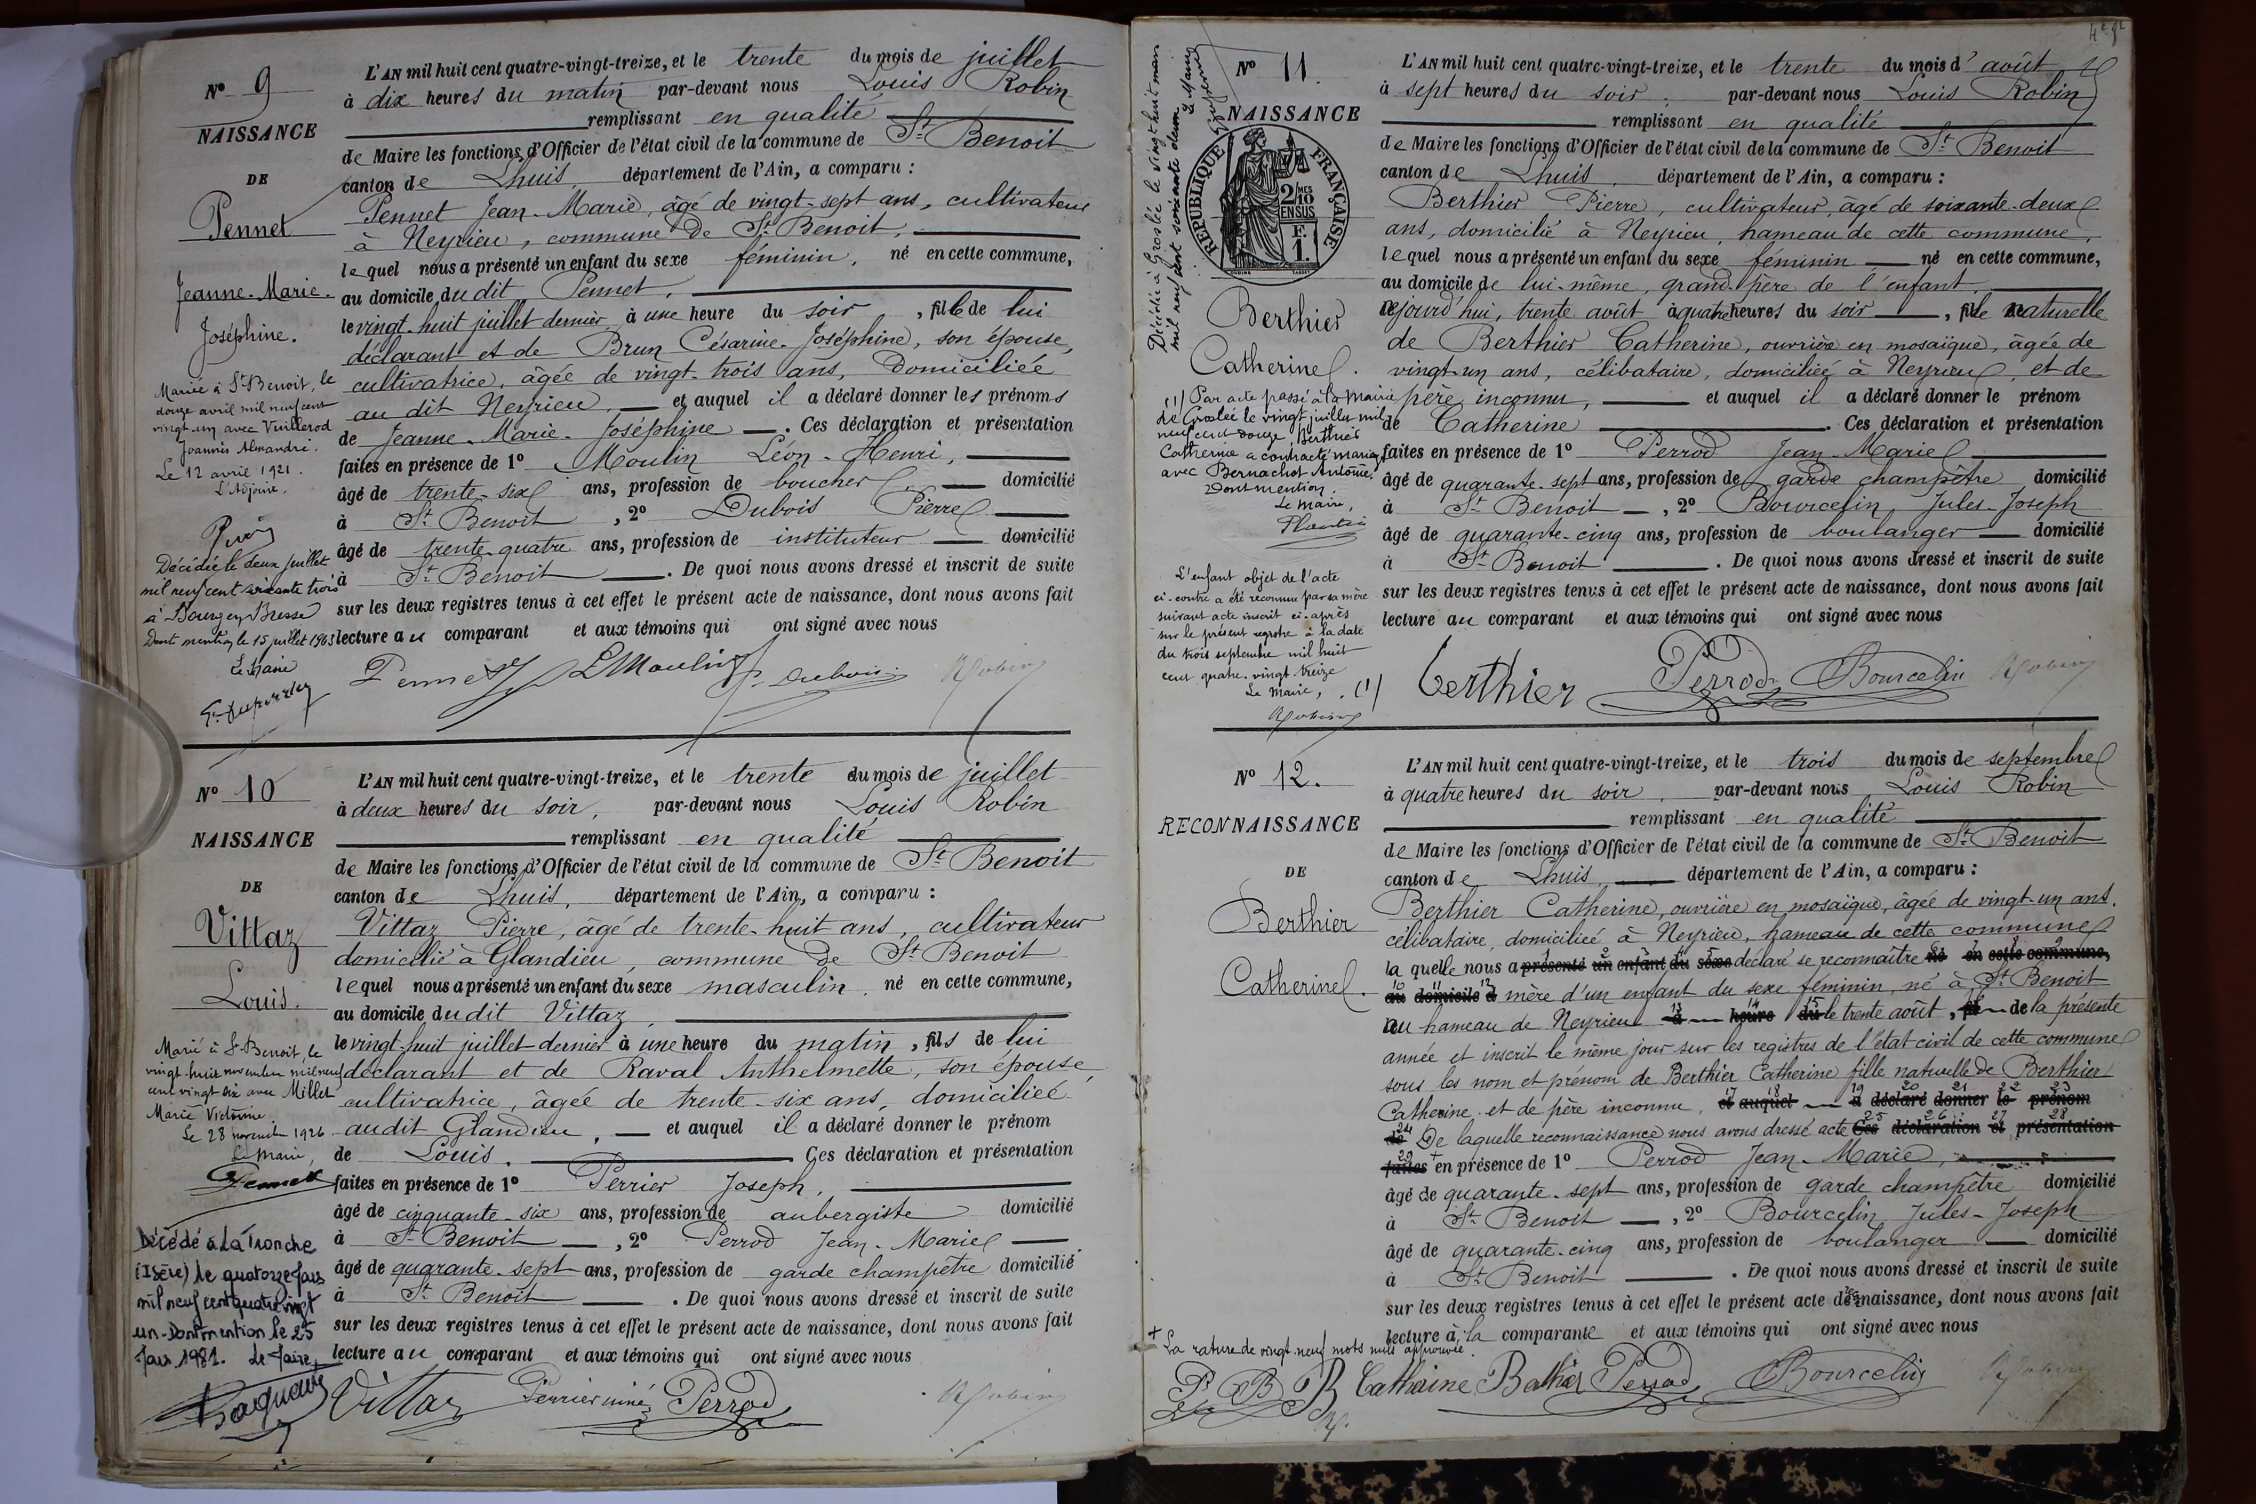 N° 9
NAISSANCE
DE
Pennet
Jeanne-Marie-
Joséphine.
Mariée à St Benoit, le
douze avril mil neuf cent
vingt-un avec Vuillerod
Joannès Alexandre.
Le 12 avril 1921.
L'Adjoint,
Décédée le deux juillet
mil neuf cent soixante trois
à Bourg en Bresse
Dont mention le 15 juillet 1963
Le Maire
L'AN mil huit cent quatre-vingt-treize, et le trente du mois de juillet
à dix heures du matin par-devant nous Louis Robin
remplissant en qualité
de Maire les fonctions d'Officier de l'état civil de la commune de St Benoit
canton de Lhuis, département de l'Ain, a comparu :
Pennet Jean-Marie, âgé de vingt-sept ans, cultivateur
à Neyrieu, commune de St Benoit,
lequel nous a présenté un enfant du sexe féminin, né en cette commune,
au domicile du dit Pennet,
le vingt-huit juillet dernier à une heure du soir, fille de lui
déclarant et de Brun Césarine-Joséphine, son épouse,
cultivatrice, âgée de vingt-trois ans, domiciliée
au dit Neyrieu, et auquel il a déclaré donner les prénoms
de Jeanne-Marie-Joséphine. Ces déclaration et présentation
faites en présence de 1° Moulin Léon-Henri,
âgé de trente-six ans, profession de boucher domicilié
à St Benoit, 2° Dubois Pierre
âgé de trente-quatre ans, profession de instituteur domicilié
à St Benoit. De quoi nous avons dressé et inscrit de suite
sur les deux registres tenus à cet effet le présent acte de naissance, dont nous avons fait
lecture au comparant et aux témoins qui ont signé avec nous
Pennet LMoulin P. Dubois Robin
N° 10
NAISSANCE
DE
Vittaz
Louis.
Marié à St Benoit, le
vingt-huit novembre mil neuf
cent vingt six avec Millet
Marie Victorine
Le 28 novembre 1926
Le Maire,
Pennet
Décédé à La Tronche
(Isère) le quatorze Jars
mil neuf cent quatre vingt
un - Dont mention le 25
Jars 1981. Le Jaire,
L'AN mil huit cent quatre-vingt-treize, et le trente du mois de juillet
à deux heures du soir, par-devant nous Louis Robin
remplissant en qualité
de Maire les fonctions d'Officier de l'état civil de la commune de St Benoit
canton de Lhuis, département de l'Ain, a comparu :
Vittaz Pierre, âgé de trente-huit ans, cultivateur
domicilié à Glandieu, commune de St Benoit
lequel nous a présenté un enfant du sexe masculin, né en cette commune,
au domicile du dit Vittaz,
le vingt-huit juillet dernier à une heure du matin, fils de lui
déclarant et de Raval Anthelmette, son épouse,
cultivatrice, âgée de trente-six ans, domiciliée
audit Glandieu, et auquel il a déclaré donner le prénom
de Louis. Ces déclaration et présentation
faites en présence de 1° Perrier Joseph,
âgé de cinquante-six ans, profession de aubergiste domicilié
à St Benoit, 2° Perrod Jean-Marie
âgé de quarante-sept ans, profession de garde champêtre domicilié
à St Benoit. De quoi nous avons dressé et inscrit de suite
sur les deux registres tenus à cet effet le présent acte de naissance, dont nous avons fait
lecture au comparant et aux témoins qui ont signé avec nous
Vittaz Perrier Perrod Robin
N° 11.
NAISSANCE
RÉPUBLIQUE FRANÇAISE
2/10MES
EN SUS
F.
1.
Décédée à Groslée le vingt huit mars
mil neuf cent soixante deux
Le Maire
Berthier
Catherine.
(1) Par acte passé à la mairie
de Groslée le vingt juillet mil
neuf cent douze, Berthier
Catherine a contracté mariage
avec Bernachot Antoine.
Dont mention.
Le Maire,
L'enfant objet de l'acte
ci-contre a été reconnu par sa mère
suivant acte inscrit ci-après
sur le présent registre à la date
du trois septembre mil huit
cent quatre-vingt-treize
Le Maire, (1)
Robin
L'AN mil huit cent quatre-vingt-treize, et le trente du mois d'août
à sept heures du soir, par-devant nous Louis Robin
remplissant en qualité
de Maire les fonctions d'Officier de l'état civil de la commune de St Benoit
canton de Lhuis, département de l'Ain, a comparu :
Berthier Pierre, cultivateur, âgé de soixante-deux
ans, domicilié à Neyrieu, hameau de cette commune,
lequel nous a présenté un enfant du sexe féminin né en cette commune,
au domicile de lui-même, grand-père de l'enfant,
cejourd'hui, trente août à quatre heures du soir, fille naturelle
de Berthier Catherine, ouvrière en mosaïque, âgée de
vingt-un ans, célibataire, domiciliée à Neyrieu, et de
père inconnu, et auquel il a déclaré donner le prénom
de Catherine. Ces déclaration et présentation
faites en présence de 1° Perrod Jean-Marie
âgé de quarante-sept ans, profession de garde champêtre domicilié
à St Benoit, 2° Bourcelin Jules-Joseph
âgé de quarante-cinq ans, profession de boulanger domicilié
à St Benoit. De quoi nous avons dressé et inscrit de suite
sur les deux registres tenus à cet effet le présent acte de naissance, dont nous avons fait
lecture au comparant et aux témoins qui ont signé avec nous
berthier Perrod Bourcelin Robin
N° 12.
RECONNAISSANCE
DE
Berthier
Catherine.
L'AN mil huit cent quatre-vingt-treize, et le trois du mois de septembre
à quatre heures du soir, par-devant nous Louis Robin
remplissant en qualité
de Maire les fonctions d'Officier de l'état civil de la commune de St Benoit
canton de Lhuis, département de l'Ain, a comparu :
Berthier Catherine, ouvrière en mosaïque, âgée de vingt-un ans,
célibataire, domiciliée à Neyrieu, hameau de cette commune
laquelle nous a présenté un enfant du sexe déclaré se reconnaître né en cette commune,
au domicile d mère d'un enfant du sexe féminin, né à St Benoit
au hameau de Neyrieu à heure du le trente août, fil de la présente
année et inscrit le même jour sur les registres de l'état civil de cette commune
sous les nom et prénom de Berthier Catherine fille naturelle de Berthier
Catherine et de père inconnu, et auquel a déclaré donner le prénom
de De laquelle reconnaissance nous avons dressé acte Ces déclaration et présentation
faites + en présence de 1° Perrod Jean-Marie,
âgé de quarante-sept ans, profession de garde champêtre domicilié
à St Benoit, 2° Bourcelin Jules-Joseph
âgé de quarante-cinq ans, profession de boulanger domicilié
à St Benoit. De quoi nous avons dressé et inscrit de suite
sur les deux registres tenus à cet effet le présent acte de reconnaissance, dont nous avons fait
lecture à la comparante et aux témoins qui ont signé avec nous
+ La rature de vingt-neuf mots nuls approuvée.
Catherine Berthier Perrod Bourcelin Robin